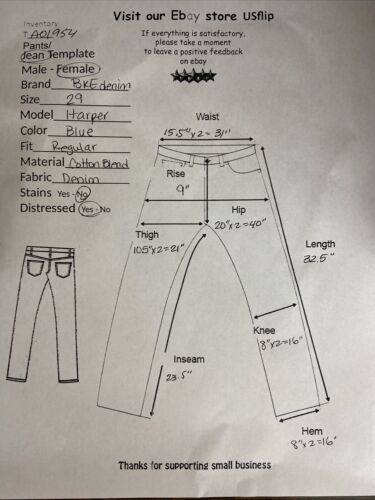 Visit our Ebay store USflip
Inventory:
T AOL954
If everything is satisfactory,
please take a moment
to leave a positive feedback
on ebay
Pants/
Jean Template
Male - Female
Brand BKE denim
Size 29
Model Harper
Color Blue
Fit Regular
Material Cotton Blend
Fabric Denim
Stains Yes - No
Distressed Yes - No
Waist
15.5"x2=31"
Rise
9"
Hip
20"x2=40"
Thigh
10.5"x2=21"
Length
32.5"
Knee
8"x2=16"
Inseam
23.5"
Hem
8"x2=16"
Thanks for supporting small business